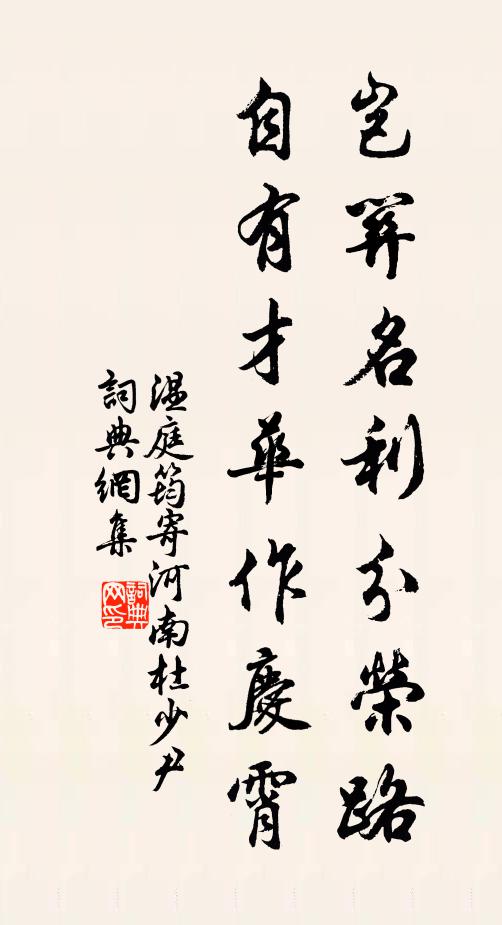 豈關名利分榮路
自有才華作慶霄
溫庭筠寄河南杜少尹
詞典網集
詞典网印